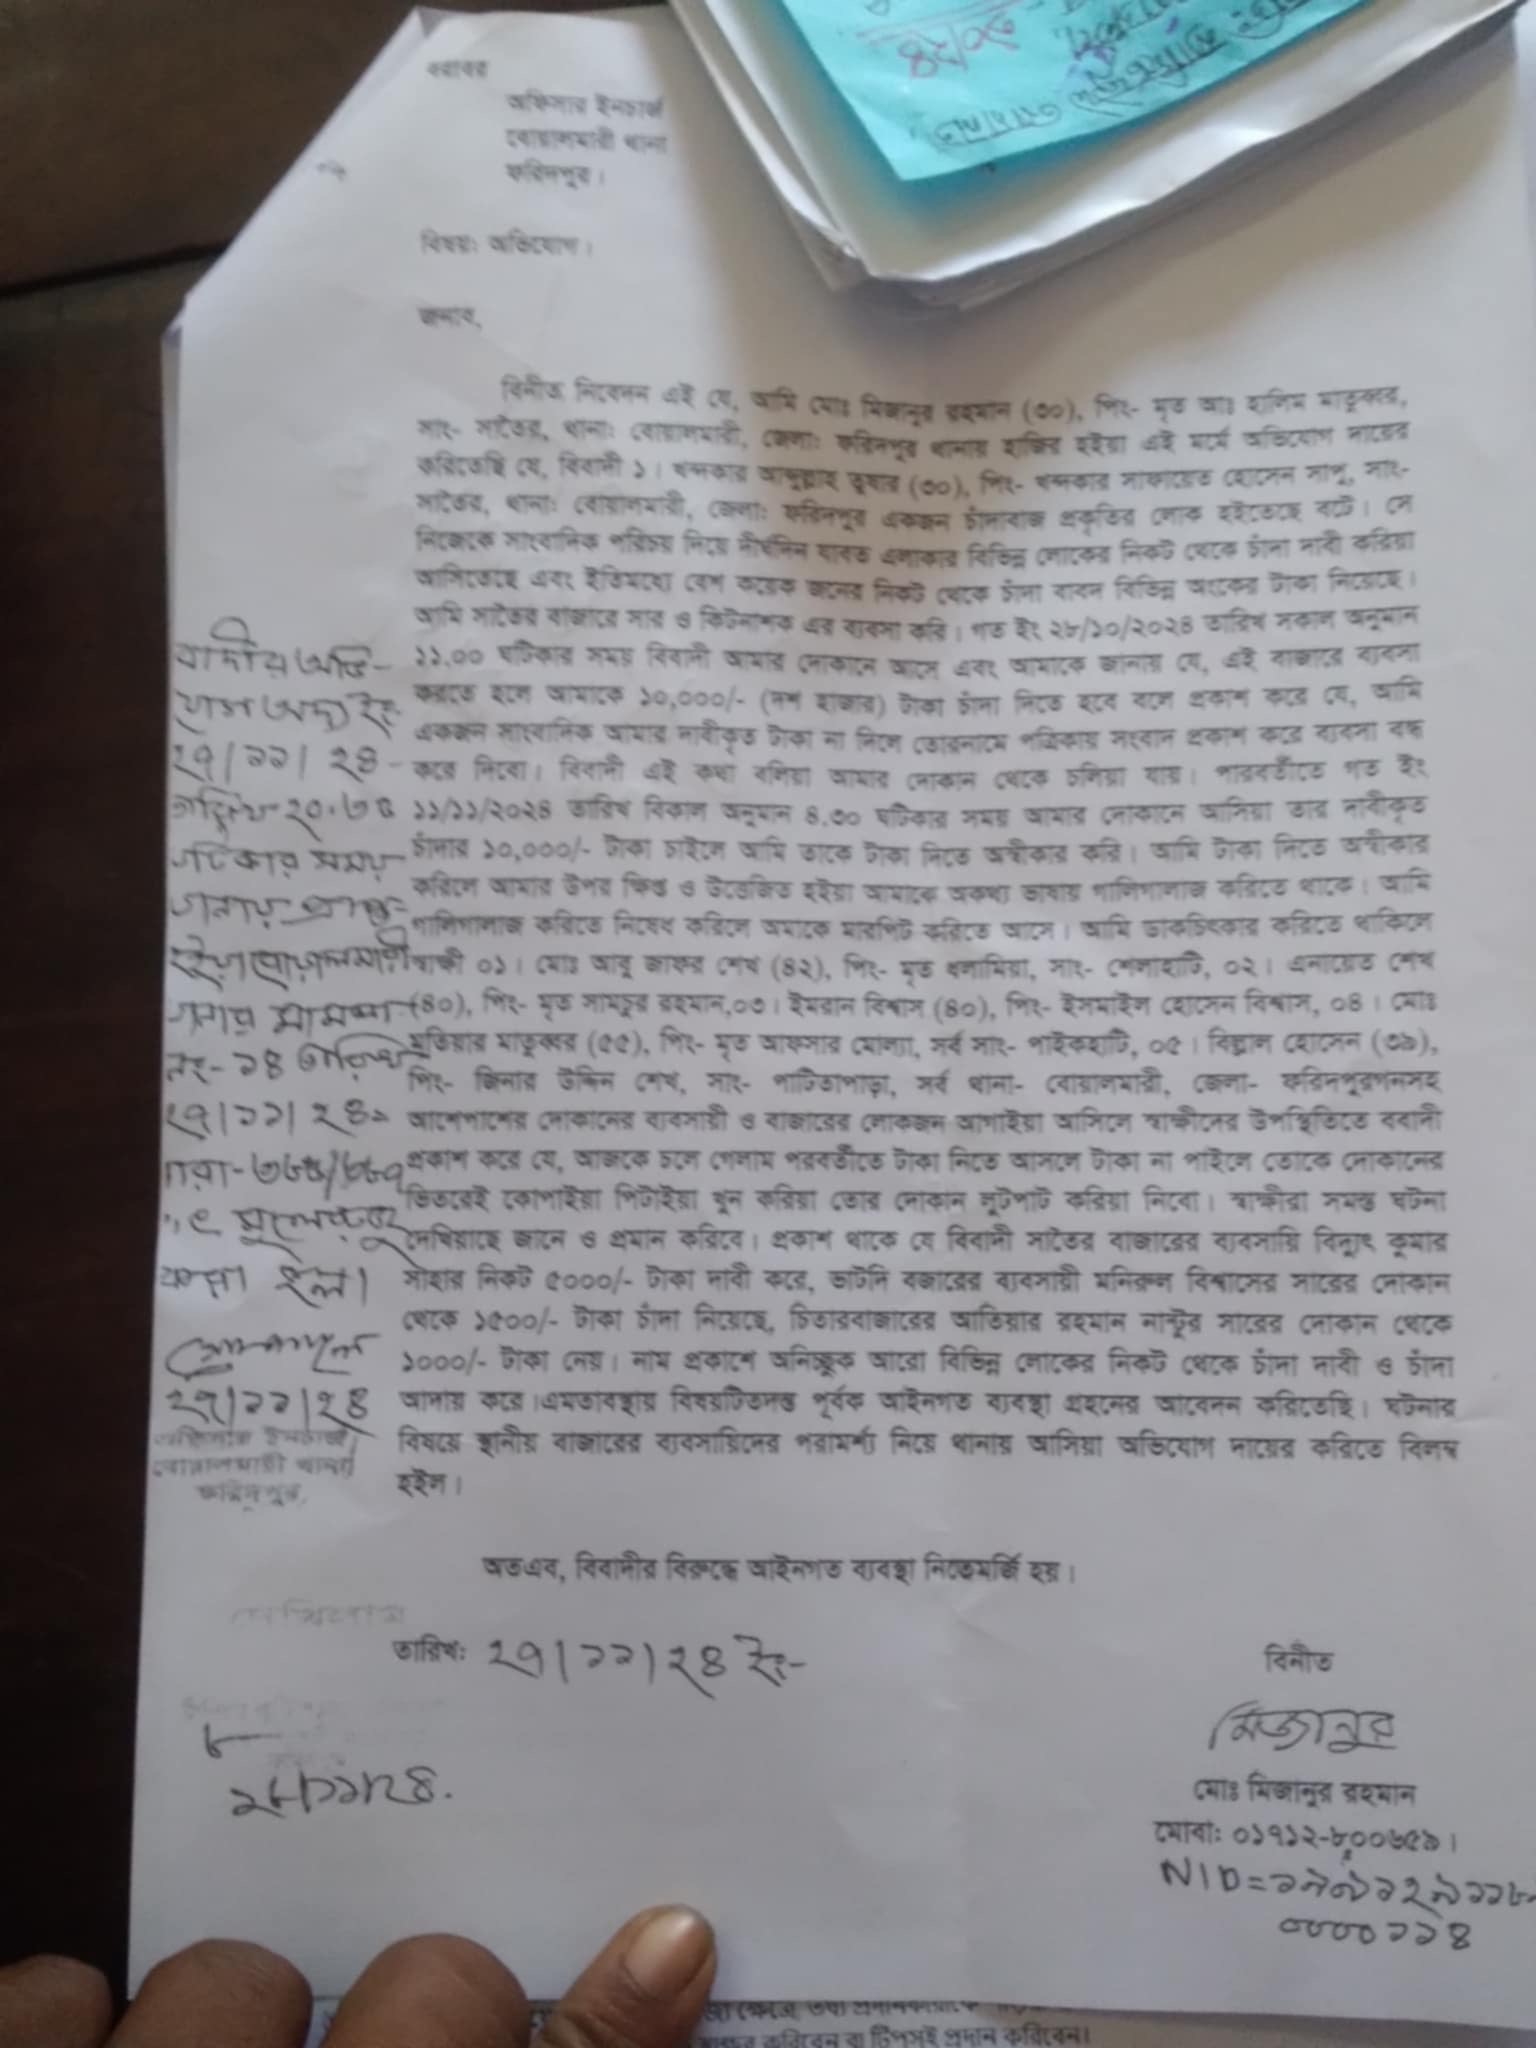 বরাবর
অফিসার ইনচার্জ
বোয়ালমারী থানা
ফরিদপুর।
বিষয়: অভিযোগ।
জনাব,
বিনীত নিবেদন এই যে, আমি মোঃ মিজানুর রহমান (৩০), পিং- মৃত আঃ হালিম মাতুব্বর,
সাং- সাতৈর, থানা: বোয়ালমারী, জেলা: ফরিদপুর থানায় হাজির হইয়া এই মর্মে অভিযোগ দায়ের
করিতেছি যে, বিবাদী ১। খন্দকার আব্দুল্লাহ তুষার (৩০), পিং- খন্দকার সাফায়েত হোসেন সাপু, সাং-
সাতৈর, থানা: বোয়ালমারী, জেলা: ফরিদপুর একজন চাঁদাবাজ প্রকৃতির লোক হইতেছে বটে। সে
নিজেকে সাংবাদিক পরিচয় দিয়ে দীর্ঘদিন যাবত এলাকার বিভিন্ন লোকের নিকট থেকে চাঁদা দাবী করিয়া
আসিতেছে এবং ইতিমধ্যে বেশ কয়েক জনের নিকট থেকে চাঁদা বাবদ বিভিন্ন অংকের টাকা নিয়েছে।
আমি সাতৈর বাজারে সার ও কিটনাশক এর ব্যবসা করি। গত ইং ২৮/১০/২০২৪ তারিখ সকাল অনুমান
১১.০০ ঘটিকার সময় বিবাদী আমার দোকানে আসে এবং আমাকে জানায় যে, এই বাজারে ব্যবসা
করতে হলে আমাকে ১০,০০০/- (দশ হাজার) টাকা চাঁদা দিতে হবে বলে প্রকাশ করে যে, আমি
একজন সাংবাদিক আমার দাবীকৃত টাকা না দিলে তোরনামে পত্রিকায় সংবাদ প্রকাশ করে ব্যবসা বন্ধ
করে দিবো। বিবাদী এই কথা বলিয়া আমার দোকান থেকে চলিয়া যায়। পারবর্তীতে গত ইং
১১/১১/২০২৪ তারিখ বিকাল অনুমান ৪.৩০ ঘটিকার সময় আমার দোকানে আসিয়া তার দাবীকৃত
চাঁদার ১০,০০০/- টাকা চাইলে আমি তাকে টাকা দিতে অস্বীকার করি। আমি টাকা দিতে অস্বীকার
করিলে আমার উপর ক্ষিপ্ত ও উত্তেজিত হইয়া আমাকে অকথ্য ভাষায় গালিগালাজ করিতে থাকে। আমি
গালিগালাজ করিতে নিষেধ করিলে অমাকে মারপিট করিতে আসে। আমি ডাকচিৎকার করিতে থাকিলে
স্বাক্ষী ০১। মোঃ আবু জাফর শেখ (৪২), পিং- মৃত ধলামিয়া, সাং- শেলাহাটি, ০২। এনায়েত শেখ
(৪০), পিং- মৃত সামচুর রহমান,০৩। ইমরান বিশ্বাস (৪০), পিং- ইসমাইল হোসেন বিশ্বাস, ০৪। মোঃ
মতিয়ার মাতুব্বর (৫৫), পিং- মৃত আফসার মোল্যা, সর্ব সাং- পাইকহাটি, ০৫। বিল্লাল হোসেন (৩৯),
পিং- জিনার উদ্দিন শেখ, সাং- পাটিতাপাড়া, সর্ব থানা- বোয়ালমারী, জেলা- ফরিদপুরগনসহ
আশেপাশের দোকানের ব্যবসায়ী ও বাজারের লোকজন আগাইয়া আসিলে স্বাক্ষীদের উপস্থিতিতে ববাদী
প্রকাশ করে যে, আজকে চলে গেলাম পরবর্তীতে টাকা নিতে আসলে টাকা না পাইলে তোকে দোকানের
ভিতরেই কোপাইয়া পিটাইয়া খুন করিয়া তোর দোকান লুটপাট করিয়া নিবো। স্বাক্ষীরা সমস্ত ঘটনা
দেখিয়াছে জানে ও প্রমান করিবে। প্রকাশ থাকে যে বিবাদী সাতৈর বাজারের ব্যবসায়ি বিদ্যুৎ কুমার
সাহার নিকট ৫০০০/- টাকা দাবী করে, ভাটদি বজারের ব্যবসায়ী মনিরুল বিশ্বাসের সারের দোকান
থেকে ১৫০০/- টাকা চাঁদা নিয়েছে, চিতারবাজারের আতিয়ার রহমান নান্টুর সারের দোকান থেকে
১০০০/- টাকা নেয়। নাম প্রকাশে অনিচ্ছুক আরো বিভিন্ন লোকের নিকট থেকে চাঁদা দাবী ও চাঁদা
আদায় করে।এমতাবস্থায় বিষয়টিতদন্ত পূর্বক আইনগত ব্যবস্থা গ্রহনের আবেদন করিতেছি। ঘটনার
বিষয়ে স্থানীয় বাজারের ব্যবসায়িদের পরামর্শ্য নিয়ে থানায় আসিয়া অভিযোগ দায়ের করিতে বিলম্ব
হইল।
অতএব, বিবাদীর বিরুদ্ধে আইনগত ব্যবস্থা নিতেমর্জি হয়।
তারিখ: ২৭/১১/২৪ ইং-
বিনীত
মিজানুর
মোঃ মিজানুর রহমান
মোবা: ০১৭১২-৮০০৬৫৯।
NID=১৯৯১২৯১১৮
০০০০১১৪
বাদীর অভি-
যোগ অদ্য ইং
২৭/১১/২৪-
তারিখ-২০.৩৫
ঘটিকার সময়
থানায় প্রাপ্ত-
হইয়া বোয়ালমারী
থানার মামলা
নং-১৪ তারিখ
২৭/১১/২৪
ধারা-৩৮৫/৩৮৭
রুজু
করা হল।
২৭/১১/২৪
অফিসার ইনচার্জ
বোয়ালমারী থানা
ফরিদপুর,
২৮/১১/২৪.